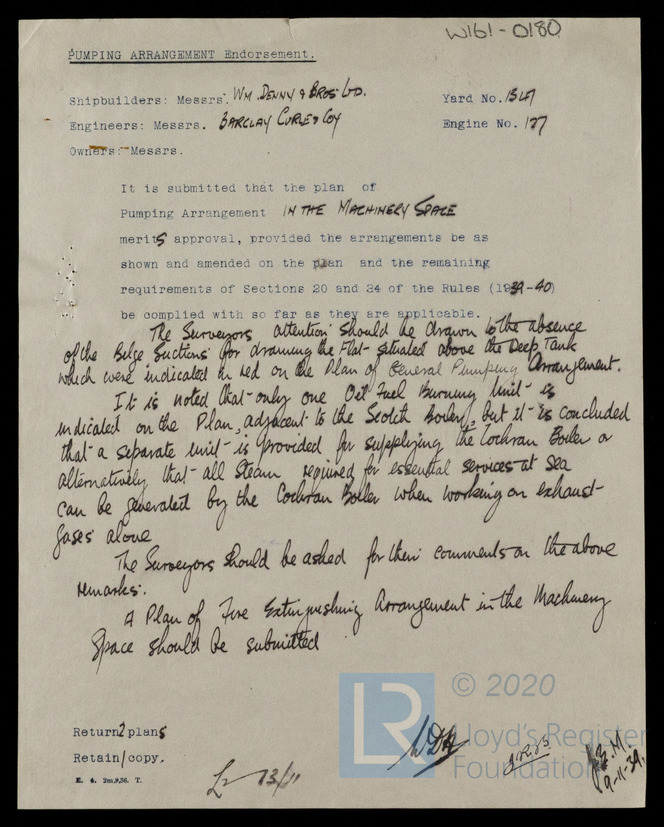 W161-0180
PUMPING ARRANGEMENT Endorsement.
Shipbuilders: Messrs. Wm. Denny & Bros Ltd.
Yard No. 1347
Engineers: Messrs. Barclay Curle & Coy
Engine No. 127
Owners: Messrs.
It is submitted that the plan of
Pumping Arrangement IN THE MACHINERY SPACE
merits approval, provided the arrangements be as
shown and amended on the plan and the remaining
requirements of Sections 20 and 34 of the Rules (1939-40)
be complied with so far as they are applicable.
The Surveyors attention should be drawn to the absence
of the Bilge Suctions for draining the Flat situated above the Deep Tank
which were indicated in red on the Plan of General Pumping Arrangement.
It is noted that only one Oil Fuel Burning Unit is
indicated on the Plan, adjacent to the Scotch Boiler, but it is concluded
that a separate unit is provided for supplying the Cochran Boiler or
alternatively that all Steam required for essential services at sea
can be generated by the Cochran Boiler when working on exhaust
gases alone
The Surveyors should be asked for their comments on the above
remarks.
A Plan of Fire Extinguishing Arrangement in the Machinery
Space should be submitted
Return 2 plans
Retain 1 copy.
E. 4. 7m,9,36. T.
13/11
9-11-39.
LR
© 2020
Lloyd's Register
Foundation